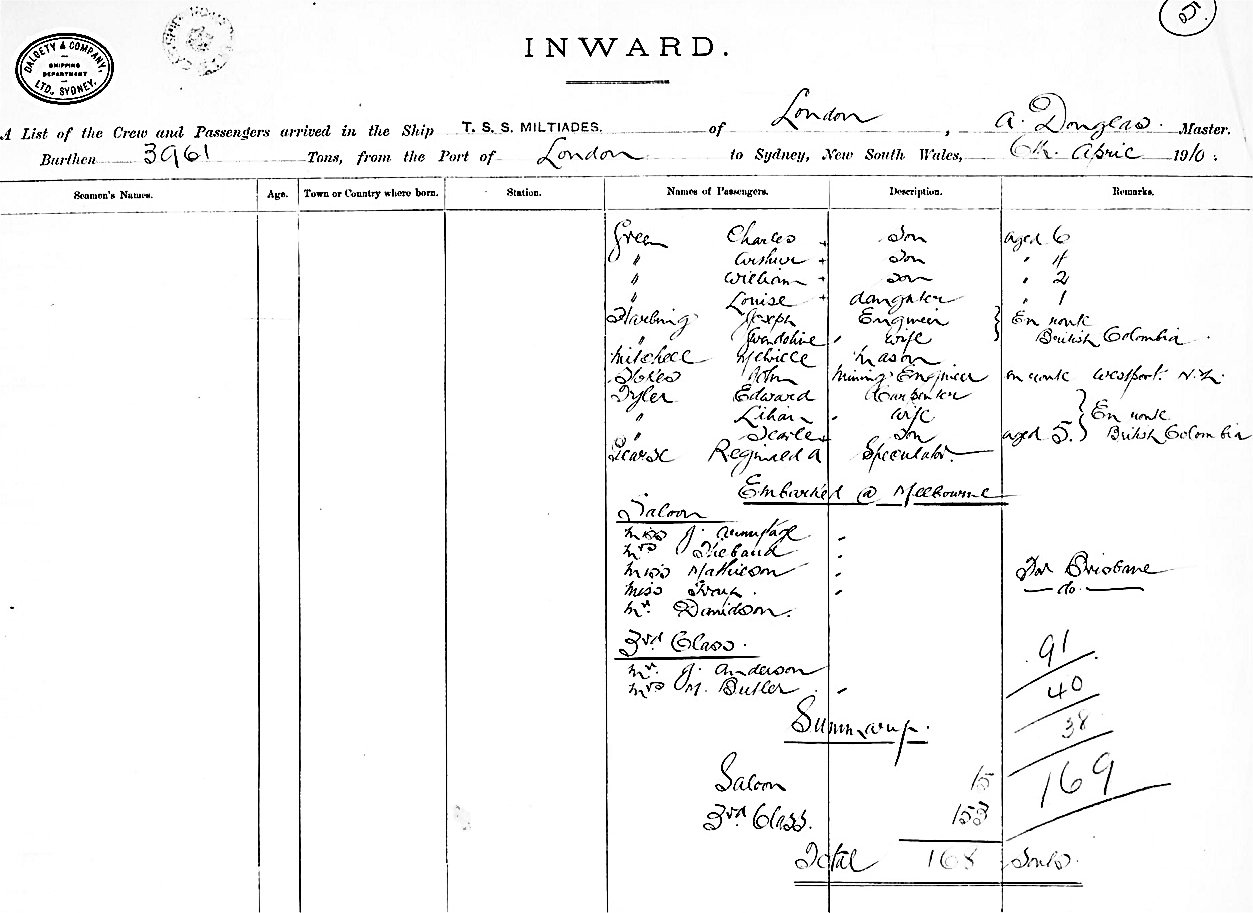 5.
DALGETY & COMPANY,
SHIPPING
DEPARTMENT
LTD., SYDNEY.
INWARD.
A List of the Crew and Passengers arrived in the Ship T. S. S. MILTIADES. of London, A. Douglas. Master.
Burthen 3961 Tons, from the Port of London to Sydney, New South Wales, 6th April 1910.
Seamen's Names. Age. Town or Country where born. Station. Names of Passengers. Description. Remarks.
Green Charles + Son aged 6
" Arthur + Son " 4
" William + Son " 2
" Louise + daughter " 1
Joseph Engineer } En route
" wife British Colombia
Mitchell Melville Mason
Stokes John Mining Engineer en route Westport. N.Z.
Tyler Edward Carpenter
" Lilian wife } En route
" Searle Son aged 5. British Colombia
Pearse Reginald A Speculator.
Embarked @ Melbourne
Saloon
Miss J. Armytage
Mrs Thebaud
Miss Mathieson For Brisbane
Miss do
Mr. Davidson.
3rd Class.
Mr. J. Anderson
Mrs M. Butler
91
40
38
169
Summary.
Saloon 15
3rd Class. 153
Total 168 Souls.